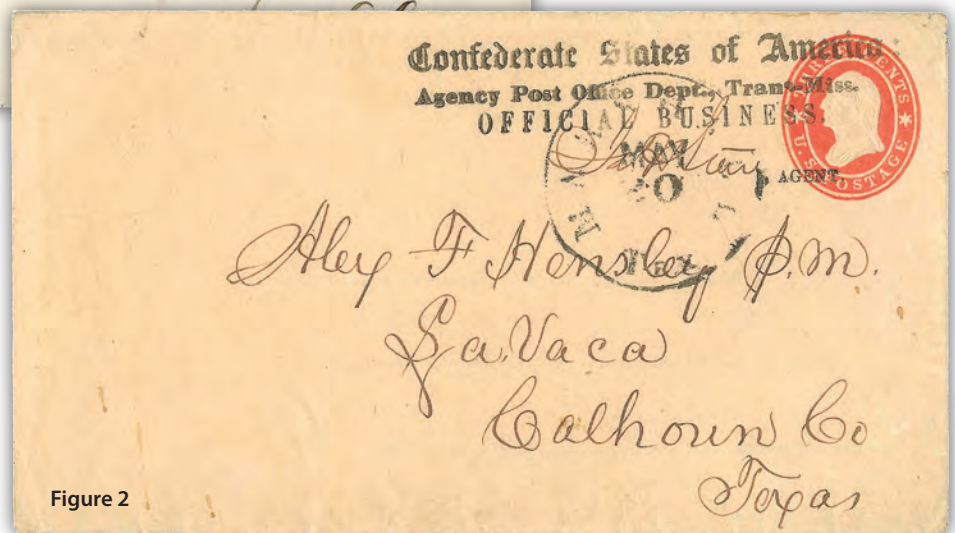 Confederate States of America:
Agency Post Office Dept., Trans-Miss.
OFFICIAL BUSINESS.
AGENT.
THREE CENTS
U.S. POSTAGE
MAY
20
TEX
Alex F Hensley P.M.
La Vaca
Calhoun Co
Texas
Figure 2